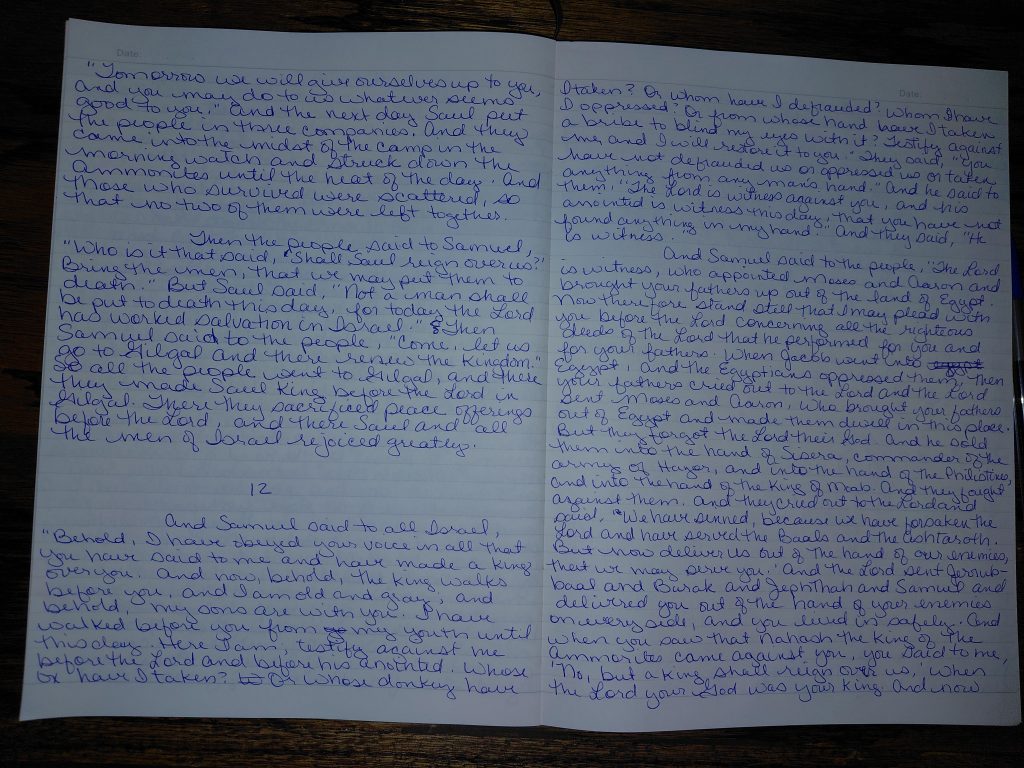 Date
"Tomorrow we will give ourselves up to you,
and you may do to us whatever seems
good to you." And the next day Saul put
the people in three companies. And they
came into the midst of the camp in the
morning watch and struck down the
Ammonites until the heat of the day. And
those who survived were scattered, so
that no two of them were left together.
Then the people said to Samuel,
"Who is it that said, 'Shall Saul reign over us?'
Bring the men, that we may put them to
death." But Saul said, "Not a man shall
be put to death this day, for today the Lord
has worked salvation in Israel." Then
Samuel said to the people, "Come, let us
go to Gilgal and there renew the kingdom."
So all the people went to Gilgal, and there
they made Saul king before the Lord in
Gilgal. There they sacrificed peace offerings
before the Lord, and there Saul and all
the men of Israel rejoiced greatly.
12
And Samuel said to all Israel,
"Behold, I have obeyed your voice in all that
you have said to me and have made a king
over you. And now, behold, the king walks
before you, and I am old and gray; and
behold, my sons are with you. I have
walked before you from my youth until
this day. Here I am; testify against me
before the Lord and before his anointed. Whose
ox have I taken? Or whose donkey have
Date
I taken? Or whom have I defrauded? Whom I have
I oppressed? Or from whose hand have I taken
a bribe to blind my eyes with it? Testify against
me and I will restore it to you." They said, "You
have not defrauded us or oppressed us or taken
anything from any man's hand." And he said to
them, "The Lord is witness against you, and his
anointed is witness this day, that you have not
found anything in my hand." And they said, "He
is witness.
And Samuel said to the people, "The Lord
is witness, who appointed Moses and Aaron and
brought your fathers up out of the land of Egypt.
Now therefore stand still that I may plead with
you before the Lord concerning all the righteous
deeds of the Lord that he performed for you and
for your fathers. When Jacob went into
Egypt, and the Egyptians oppressed them, then
your fathers cried out to the Lord and the Lord
sent Moses and Aaron, who brought your fathers
out of Egypt and made them dwell in this place.
But they forgot the Lord their God. And he sold
them into the hand of Sisera, commander of the
army of Hazor, and into the hand of the Philistines,
and into the hand of the King of Moab. And they fought
against them. And they cried out to the Lord and
said, 'We have sinned, because we have forsaken the
Lord and have served the Baals and the Ashtaroth.
But now deliver us out of the hand of our enemies,
that we may serve you.' And the Lord sent Jerub-
baal and Barak and Jephthah and Samuel and
delivered you out of the hand of your enemies
on every side, and you lived in safety. And
when you saw that Nahash the king of the
Ammonites came against you, you said to me,
'No, but a king shall reign over us,' when
the Lord your God was your king. And now